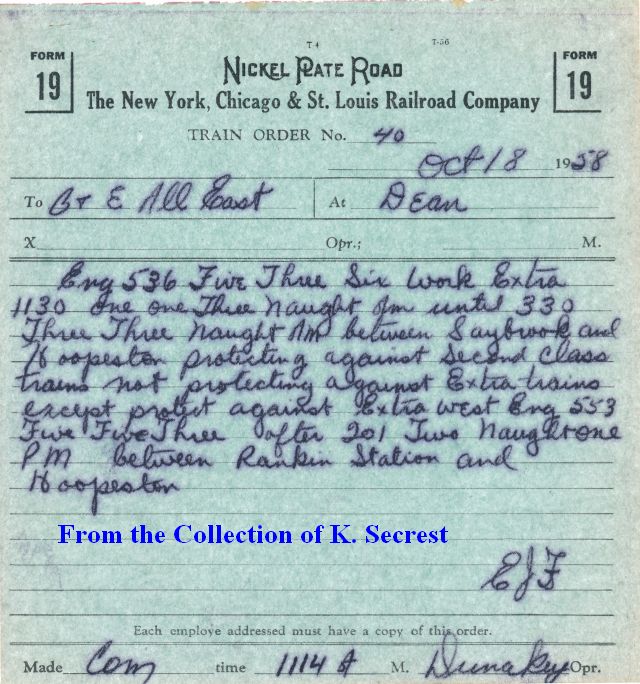 T4 T-56
FORM 19 FORM 19
NICKEL PLATE ROAD
The New York, Chicago & St. Louis Railroad Company
TRAIN ORDER No. 40
Oct 18 1958
To C+E All East At Dean
X Opr.; M.
Eng 536 Five Three Six Work Extra
1130 one one Three Naught Am until 330
Three Three Naught PM between Saybrook and
Hoopeston protecting against Second Class
trains not protecting against Extra trains
except protect against Extra West Eng 553
Five Five Three after 201 Two Naught one
PM between Rankin Station and
Hoopeston
From the Collection of K. Secrest
EJF
Each employe addressed must have a copy of this order.
Made Com time 1114 A M. Opr.